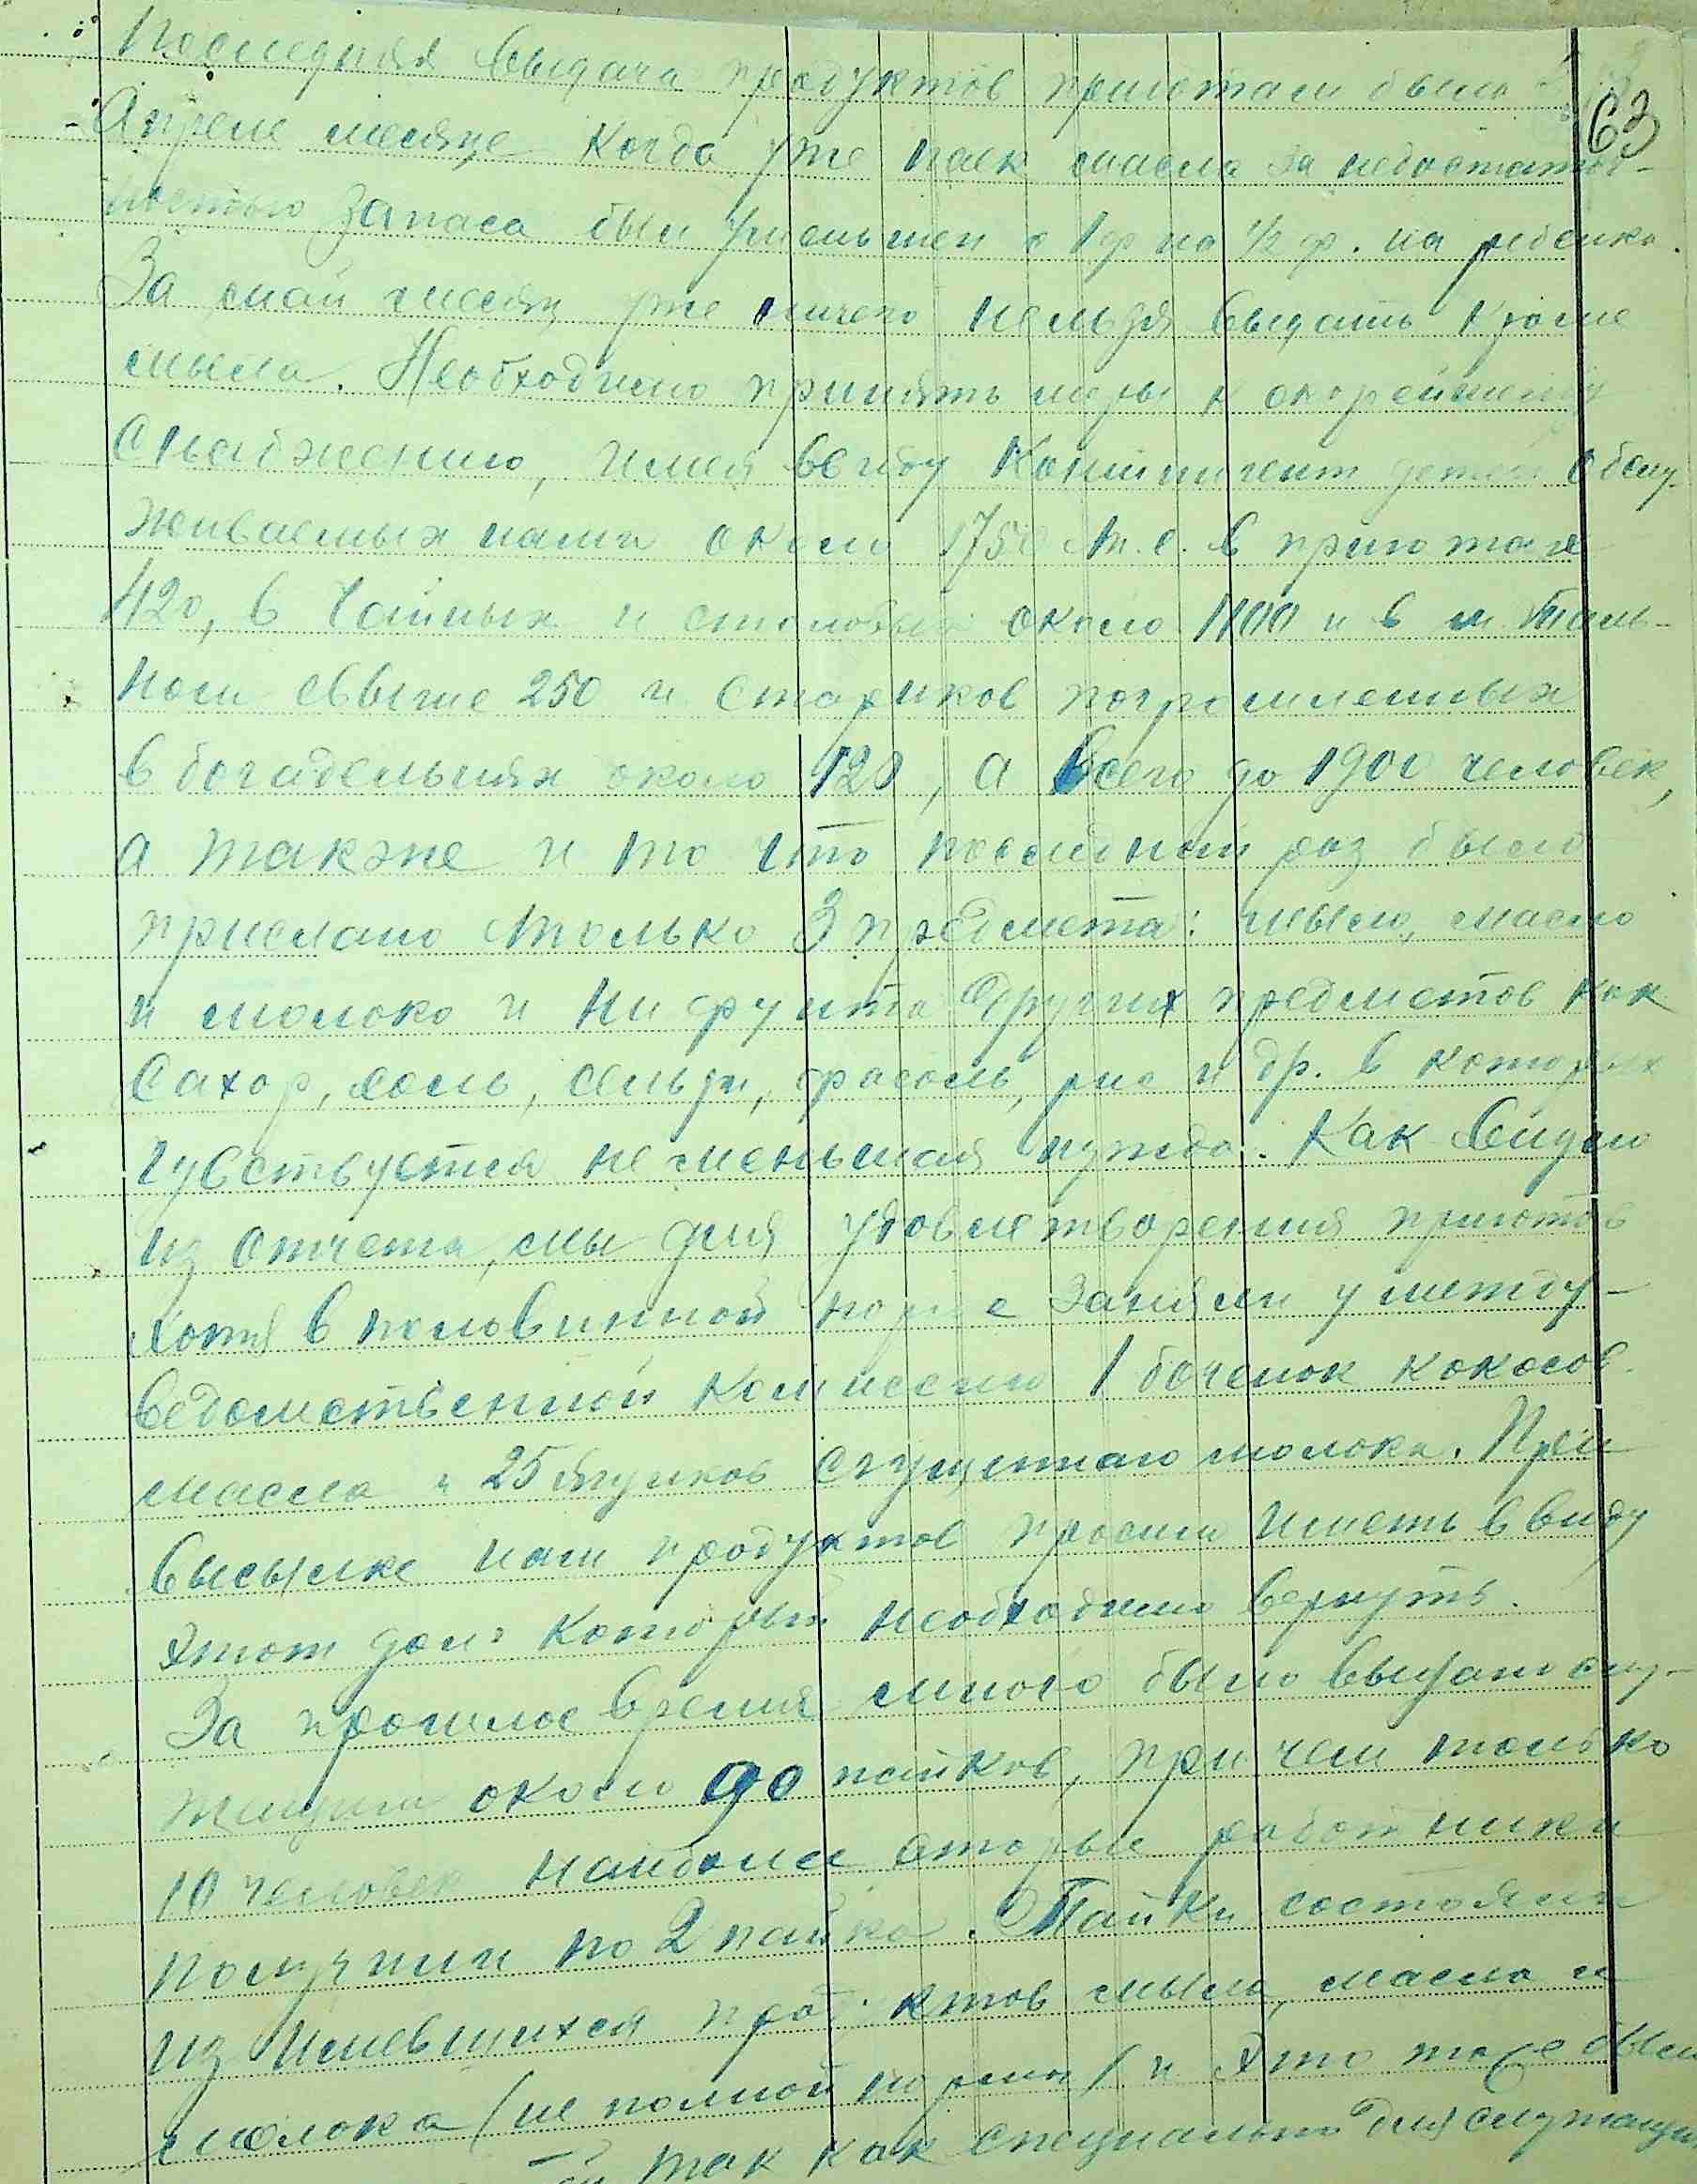 63
Последняя выдача продуктов приютам была в
Апреле месяце когда уже паек масла за недостаточ-
ностью запаса был уменьшен с 1 ф на ½ ф. на ребенка.
За май месяц уже ничего нельзя выдать кроме
мыла. Необходимо принять меры к скорейшему
снабжению, имея ввиду контингент детей обслу-
живаемых нами около 1750 т.е. в приютах
420, в чайных и столовых около 1100 и в м. Таль-
ном свыше 250 и стариков погромленных
в богадельнях около 120, а всего до 1900 человек,
а также и то что последний раз было
прислано только 3 предмета: мыло, масло
и молоко и ни фунта других предметов как
сахар, соль, сельди, фасоль, рис и др. в которых
чувствуется не меньшая нужда. Как видно
из отчета, мы для удовлетворения приютов
хотя в половинной норме заняли у между-
ведомственной комиссии 1 боченок кокосов.
масла и 25 ящиков сгущенного молока. При
высылке нам продуктов просим иметь ввиду
этот долг который необходимо вернуть.
За прошлое время много было выдано слу-
жащим около 90 пайков, при чем только
10 человек наиболее старые работники
получили по 2 пайка. Пайки состояли
из имевшихся продуктов мыла, масла и
молока (не полной нормы) и это тоже было
так как специально для служащих